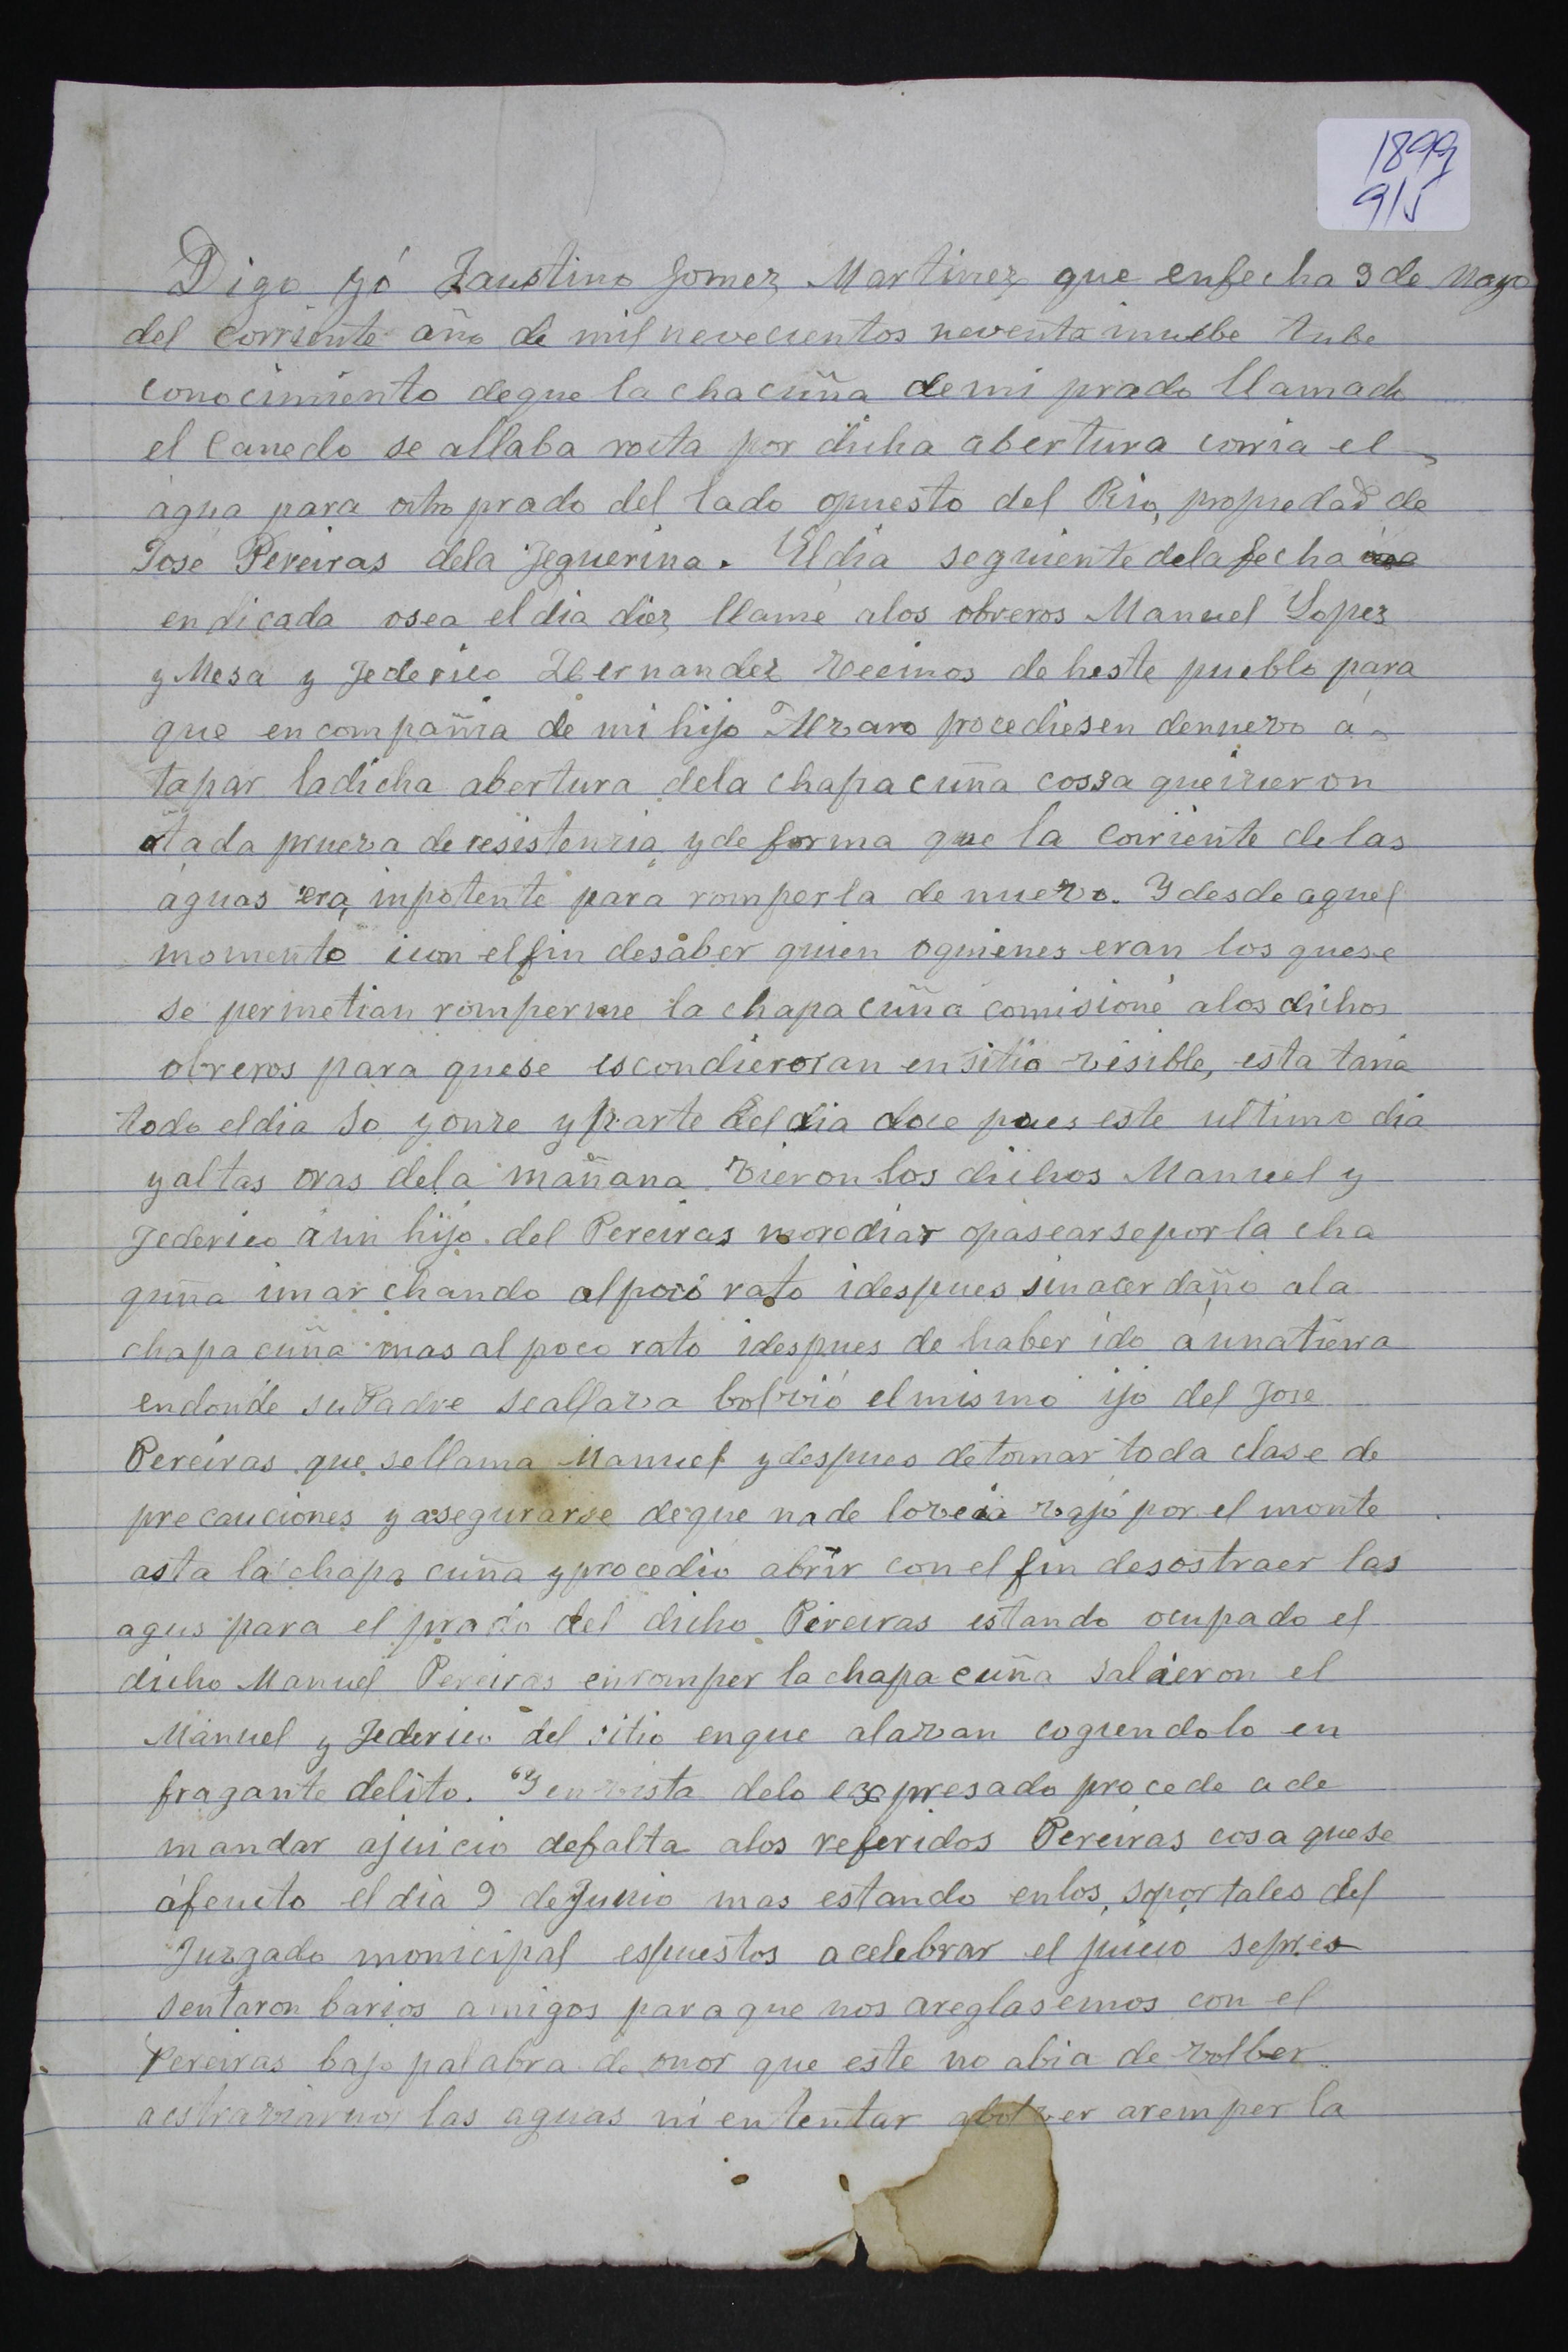 1899
9/5
Digo yó Faustino Gomez Martinez que enfecha 9 de Mayo
del corriente año de mil nevecientos noventa inuebe tube
conocimiento deque la chacuña demi prado llamado
el Canedo se allaba rota por dicha abertura corria el
agua para otro prado del lado opuesto del Rio, propiedad de
José Pereiras dela Feguerina. El dia seguiente dela fecha
endicada osea el dia diez llamé alos obreros Manuel Lopez
y Mesa y Federico Hernandez vecinos de heste pueblo para
que en compañia de mi hijo Alvaro procediesen denuevo á
tapar ladicha abertura dela chapacuña cossa queicieron
atada prueva de resistencia y de forma que la corriente de las
águas era inpotente para romperla de nuevo. Y desde aquel
momento icon elfin desaber quien oquienes eran los quese
se permetian romperme la chapacuña comisioné alos dichos
obreros para quese escondieroran en sitio visible, esta taria
todo eldia so yonze y parte del dia doce pues este ultimo dia
yaltas oras dela mañana vieron los dichos Manuel y
Federico áun hijo del Pereiras morodiar opasearsepor la cha
guña imarchando alpoco rato idespues sinacer daño ala
chapacuña mas al poco rato idespues de haber ido áunatierra
endonde suPadre seallava bolvió elmismo ijo del Jose
Pereiras que sellama Manuel ydespues detomar toda clase de
precauciones y asegurarse deque nade loveia vajó por el monte
asta la chapa cuña yprocedió abrir con el fin desostraer las
agus para el prado del dicho Pireiras estando ocupado el
dicho Manuel Pereiras enromper la chapacuña salieron el
Manuel y Federico del sitio enque alavan cogiendolo en
fragante delito. Y envista delo expresado procede a de
mandar ajuicio defalta alos referidos Pereiras cosa quese
áfeucto el dia 9 de Junio mas estando enlos soportales del
Juzgado monicipal espuestos acelebrar el juicio sepres
sentaron barios amigos paraque nos areglasemos con el
Pereiras bajo palabra de onor que este no abia de volber
aestraviarnos las aguas ni ententar abolver aremper la